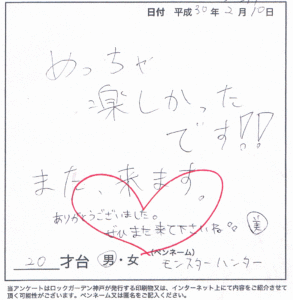 日付 平成30年2月10日
めっちゃ
楽しかった
です!!
また、来ます。
ありがとうございました。
ぜひまた来て下さいね。
美
20才台 男・女 (ペンネーム)
モンスターハンター
当アンケートはロックガーデン神戸が発行する印刷物又は、インターネット上にて内容をご紹介させて
頂く可能性がございます。ペンネーム又は匿名をご記入ください。